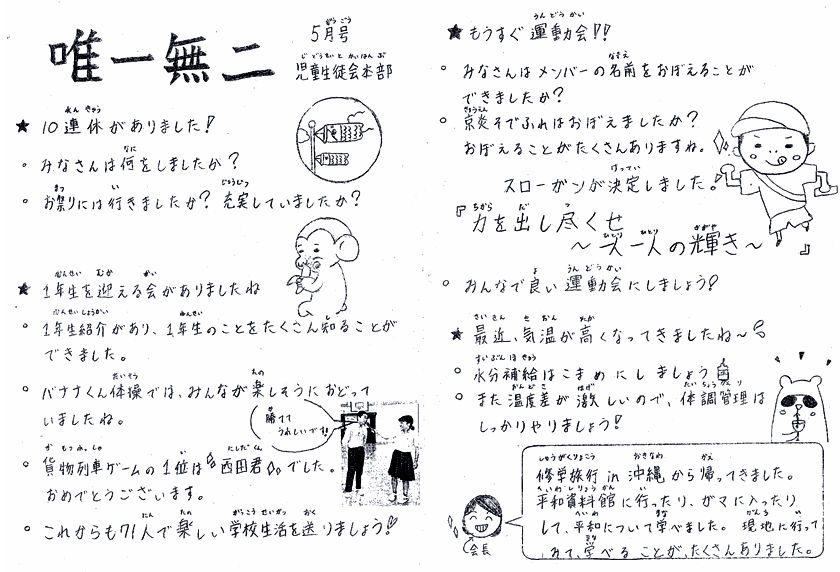 唯一無二
5月号
児童生徒会本部
★10連休がありました!
。みなさんは何をしましたか?
。お祭りには行きましたか?充実していましたか?
★1年生を迎える会がありましたね
。1年生紹介があり、1年生のことをたくさん知ることが
できました。
。バナナくん体操では、みんなが楽しそうにおどって
いましたね。
勝てて
うれしいです!!
。貨物列車ゲームの1位は西田君でした。
おめでとうございます。
。これからも71人で楽しい学校生活を送りましょう!
★もうすぐ運動会!!
。みなさんはメンバーの名前をおぼえることが
できましたか?
。京炎そでふれはおぼえましたか?
おぼえることがたくさんありますね。
スローガンが決定しました!
『力を出し尽くせ
～一人一人の輝き～
。みんなで良い運動会にしましょう!
★最近、気温が高くなってきましたね～
。水分補給はこまめにしましょう
。また温度差が激しいので、体調管理は
しっかりやりましょう!
修学旅行in沖縄から帰ってきました。
平和資料館に行ったり、ガマに入ったり
して、平和について学べました。現地に行って
みて、学べることが、たくさんありました。
会長